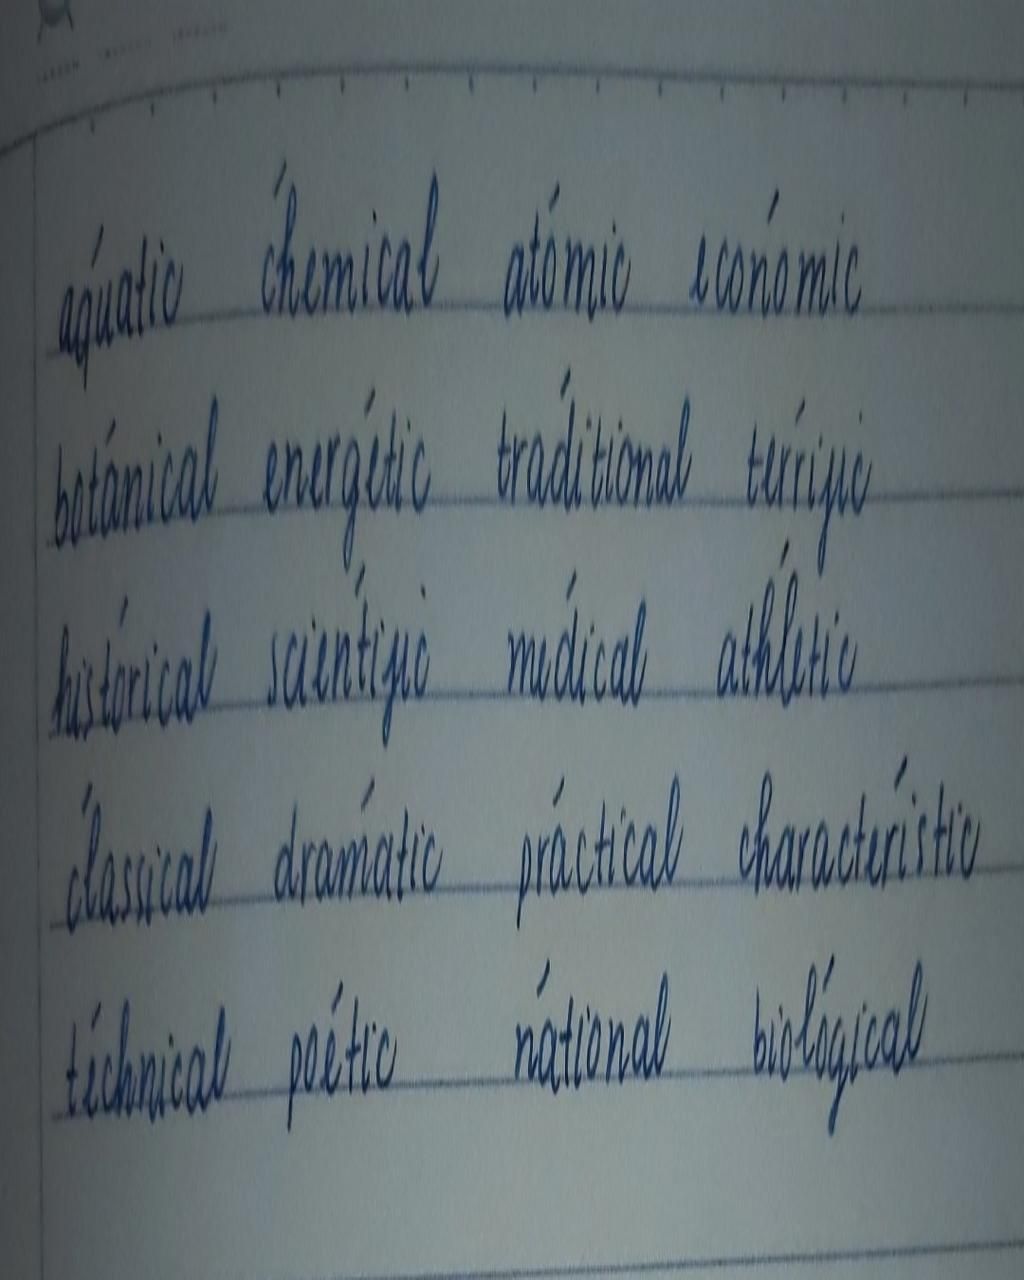 aq́uatic ćhemical atómic económic
botánical energétic trad́itional teŕrific
histórical scient́ific med́ical athĺetic
ćlassical dramátic práctical characterístic
téchnical poétic nátional biológical